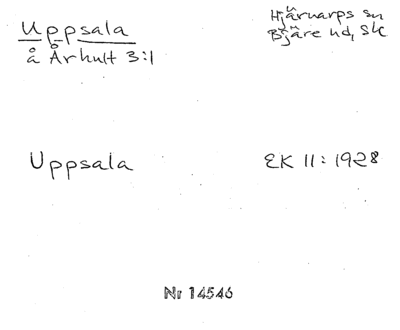 Uppsala
å Århult 3:1
Hjärnarps sn
Bjäre hd, Sk
Uppsala
EK II: 1928
Nr 14546